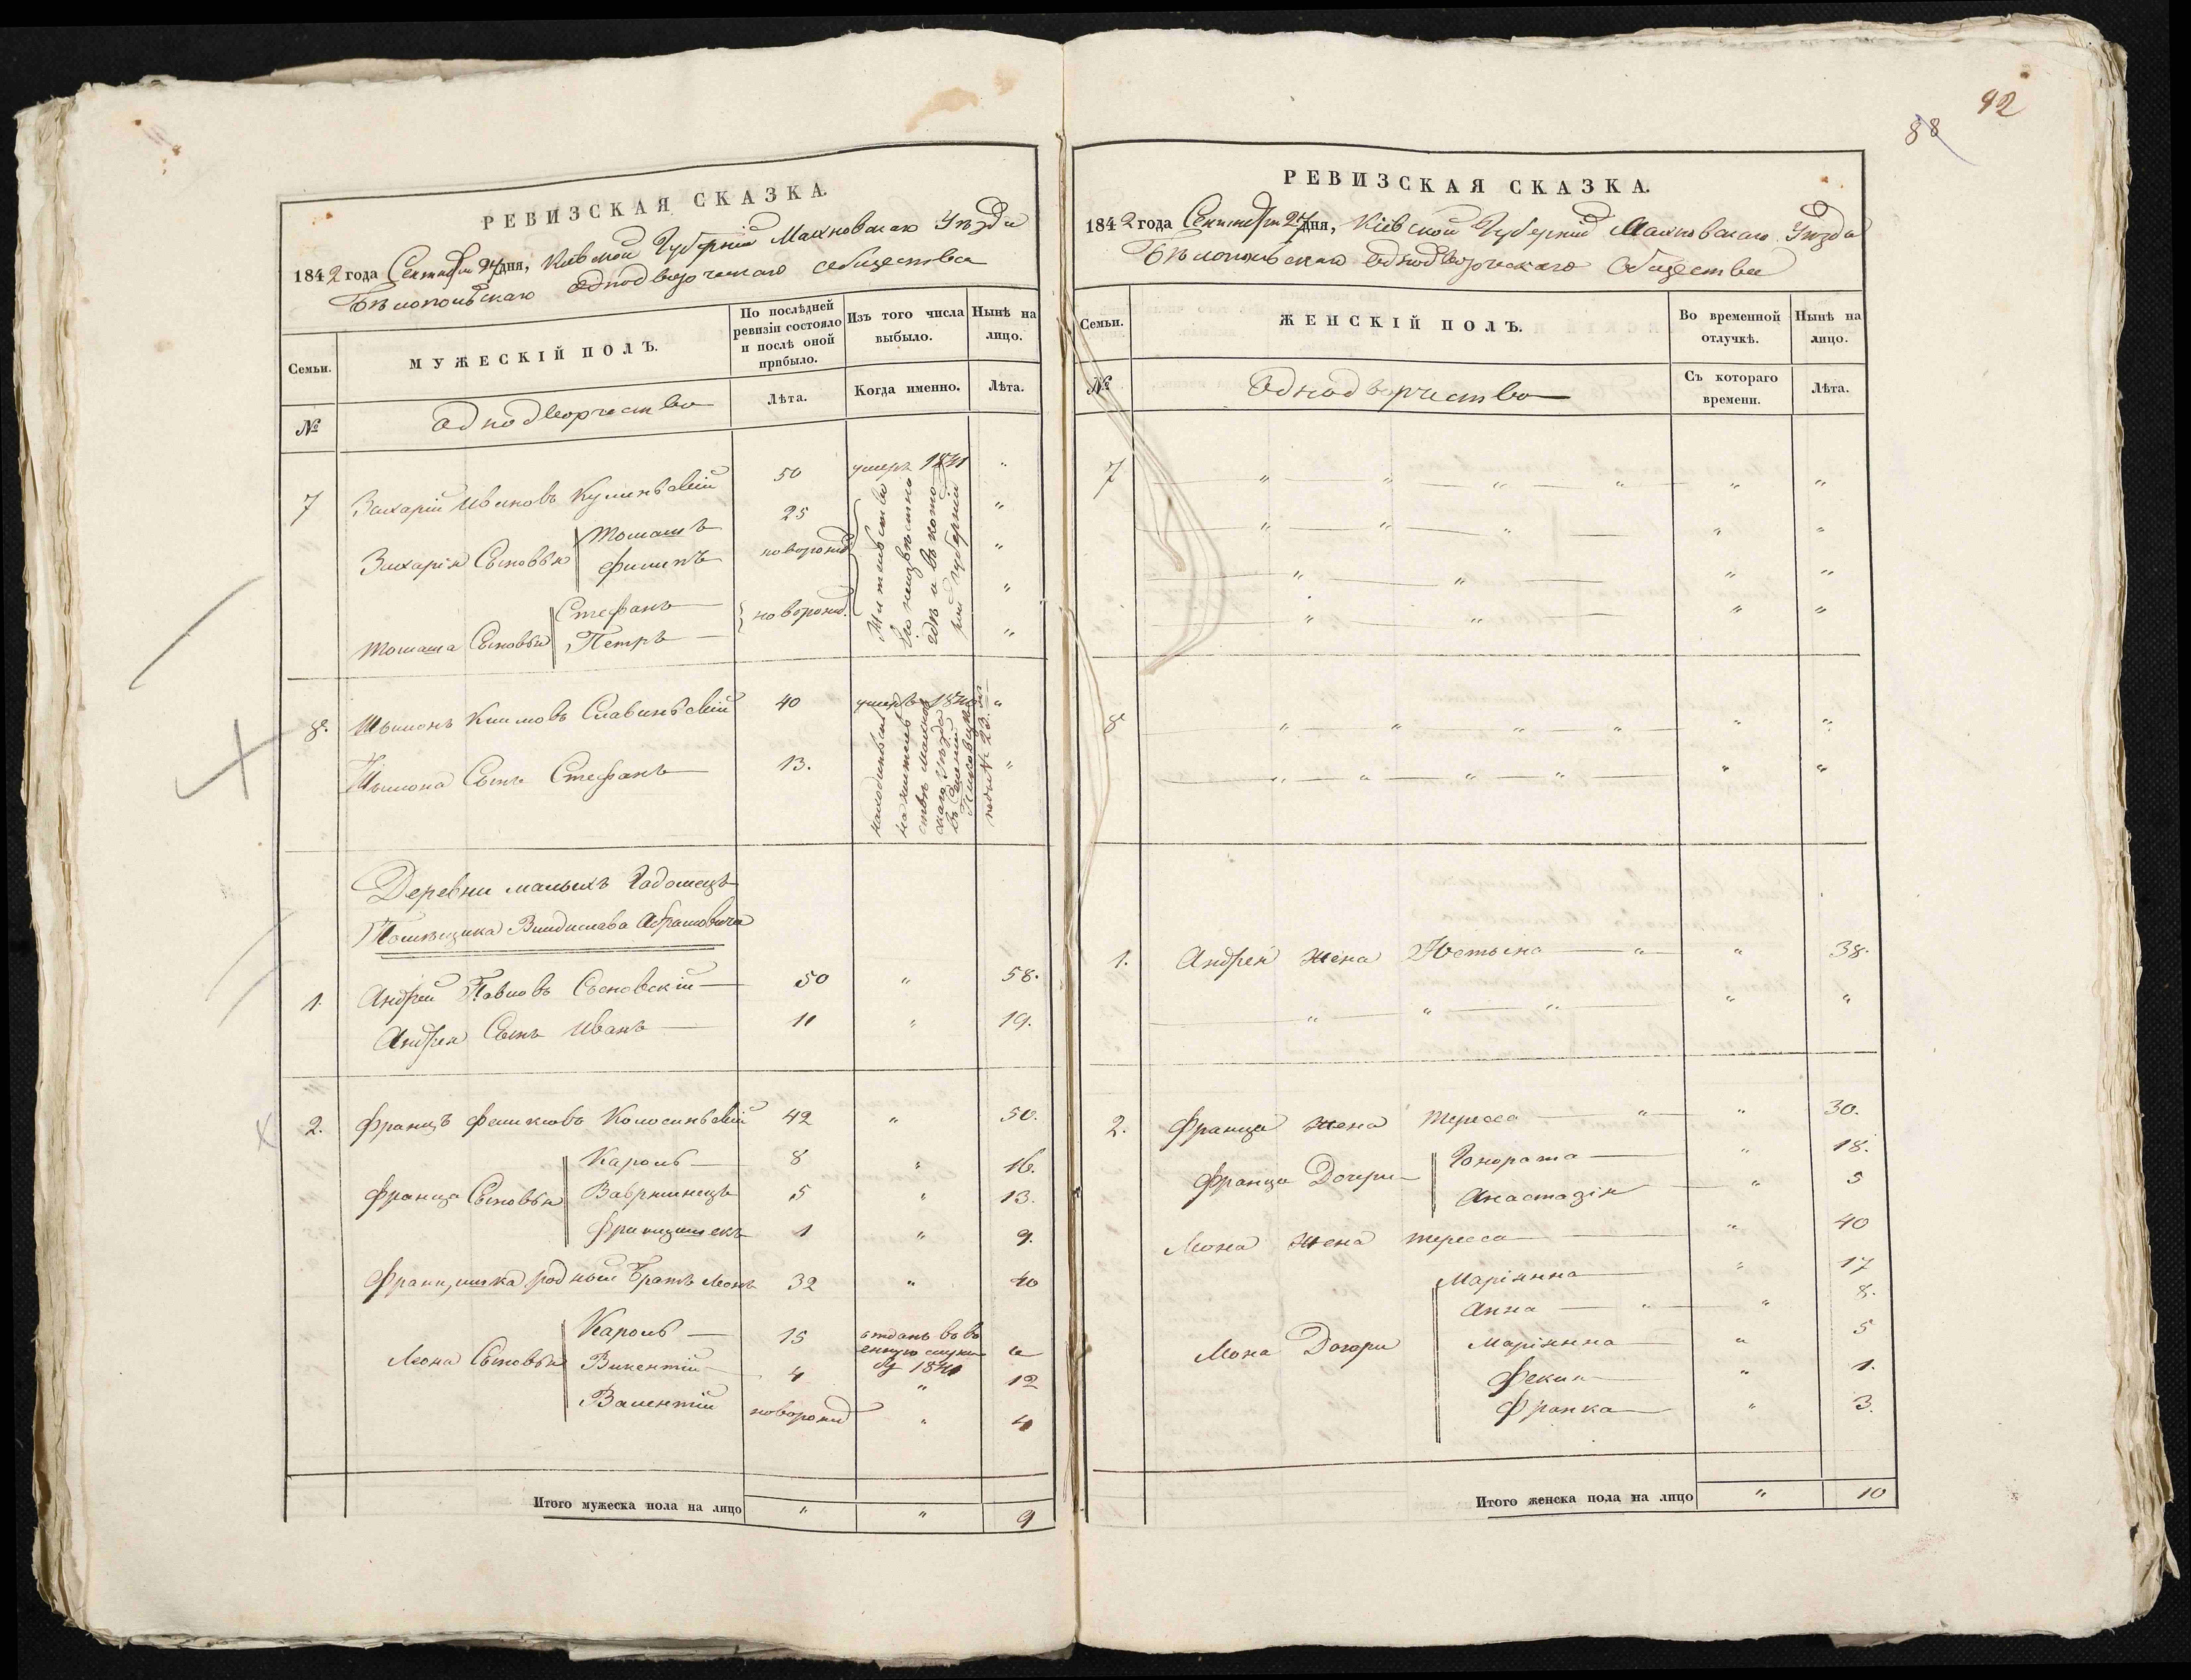 РЕВИЗСКАЯ СКАЗКА.
1842 года Сентября 27 дня, Кіевской Губерніи Махновскаго Уѣзда
Бѣлопольскаго однодворческаго общества
Семьи.
МУЖЕСКІЙ ПОЛЪ.
По послѣдней ревизіи состояло и послѣ оной прибыло.
Изъ того числа выбыло.
Нынѣ на лицо.
№
Однодворчество
Лѣта.
Когда именно.
Лѣта.
7 Захарій Ивановъ 50 умеръ 1841 "
Захарія Сыновья Томашъ 25 "
Филипъ новорожд "
Томаша Сыновья Стефанъ новорожд. "
Петръ "
Жительство
его неизвѣстно
гдѣ и въ кото
рой губерніи
8. Шымонъ Климовъ Славинскій 40 умеръ 1840 "
Шымона Сынъ Стефанъ 13. "
находится
на житель
ствѣ Махнов
скаго Уѣзда
въ Селеніи
подъ № 23.
Деревни малыхъ Гадомецъ
Помѣщика Владислава Абрамовича
1. Андрей Павловъ Сосновскій 50 " 58.
Андрея Сынъ Иванъ 11 " 19.
2. Францъ Феликсовъ Колосинскій 42 " 50.
Франца Сыновья Кароль 8 " 16.
Вавржинецъ 5 " 13.
Францишекъ 1 " 9.
Францишка родный Братъ Леонъ 32 " 40
Леона Сыновья Кароль 15 отданъ въ во
енную служ
бу 1841 "
Викентій 4 " 12
Валентій новорожд " 4
Итого мужеска пола на лицо " " 9
92
88
РЕВИЗСКАЯ СКАЗКА.
1842 года Сентября 27 дня, Кіевской Губерніи Махновскаго Уѣзда
Бѣлопольскаго однодворческаго общества
Семьи.
ЖЕНСКІЙ ПОЛЪ.
Во временной отлучкѣ.
Нынѣ на лицо.
№
Однодворчество
Съ котораго времени.
Лѣта.
7 " " " " " "
" " " " "
" " " "
" " " "
8 " " " " " "
" " " " " "
1. Андрея жена Юстына " " 38.
" " " " "
2. Франца жена Тереса " " 30.
Франца Дочери Гонората " 18.
Анастазія " 5
Леона жена Тереса " 40
Леона Дочери Маріянна " 17
Анна " " 8.
Маріянна " 5
" 1.
Франка " 3.
Итого женска пола на лицо " 10